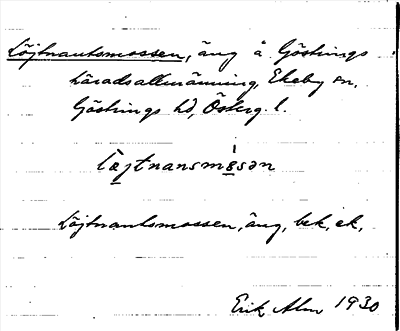 Löjtnantsmossen, äng å Göstrings
häradsallmänning, Ekeby sn,
Göstrings hd, Österg. l.
lœjtnansmɵsən
Löjtnantsmossen, äng, bek, ek,
Erik Alm 1930